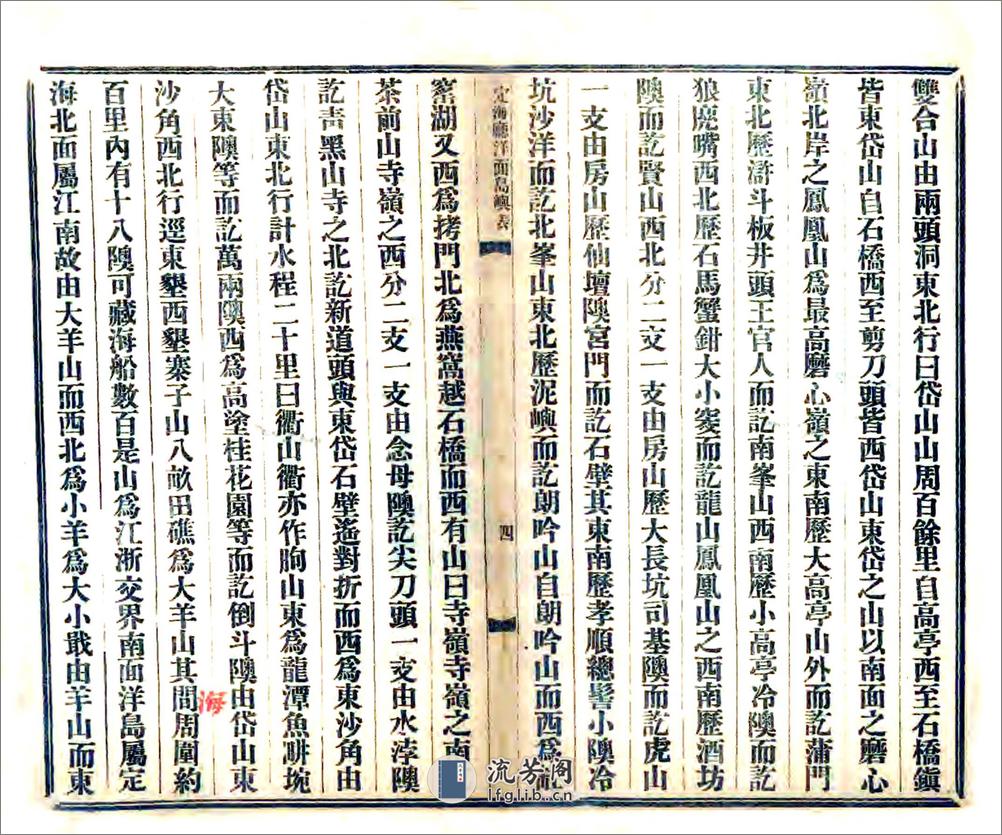 雙合山由兩頭洞東北行曰岱山山周百餘里自高亭西至石橋鎭
皆東岱山自石橋西至剪刀頭皆西岱山東岱之山以南面之磨心
嶺北岸之鳳凰山爲最高磨心嶺之東南歷大高亭山外而訖蒲門
東北歷滸斗板井頭王官人而訖南峯山西南歷小高亭冷隩而訖
狼麂嘴西北歷石馬蟹鉗大小窔而訖龍山鳳凰山之西南歷酒坊
隩而訖賢山西北分二支一支由房山歷大長坑司基隩而訖虎山
一支由房山歷仙壇隩宮門而訖石壁其東南歷孝順總髻小隩冷
坑沙洋而訖北峯山東北歷泥嶼而訖朗吟山自朗吟山而西爲
定海廳洋面島嶼表
四
窰湖又西爲拷門北爲燕窩越石橋而西有山曰寺嶺寺嶺之南
茶前山寺嶺之西分二支一支由念母隩訖尖刀頭一支由水涬隩
訖靑黑山寺之北訖新道頭與東岱石壁遙對折而西爲東沙角由
岱山東北行計水程二十里曰衢山衢亦作朐山東爲龍潭魚畊垸
大東隩等而訖萬兩隩西爲高塗桂花園等而訖倒斗隩由岱山東
沙角西北行逕東墾西墾寨子山八畝田礁爲大羊山其間周圍約
海
百里內有十八隩可藏海船數百是山爲江浙交界南面洋島屬定
海北面屬江南故由大羊山而西北爲小羊爲大小戢由羊山而東
流芳阁
lfglib.cn